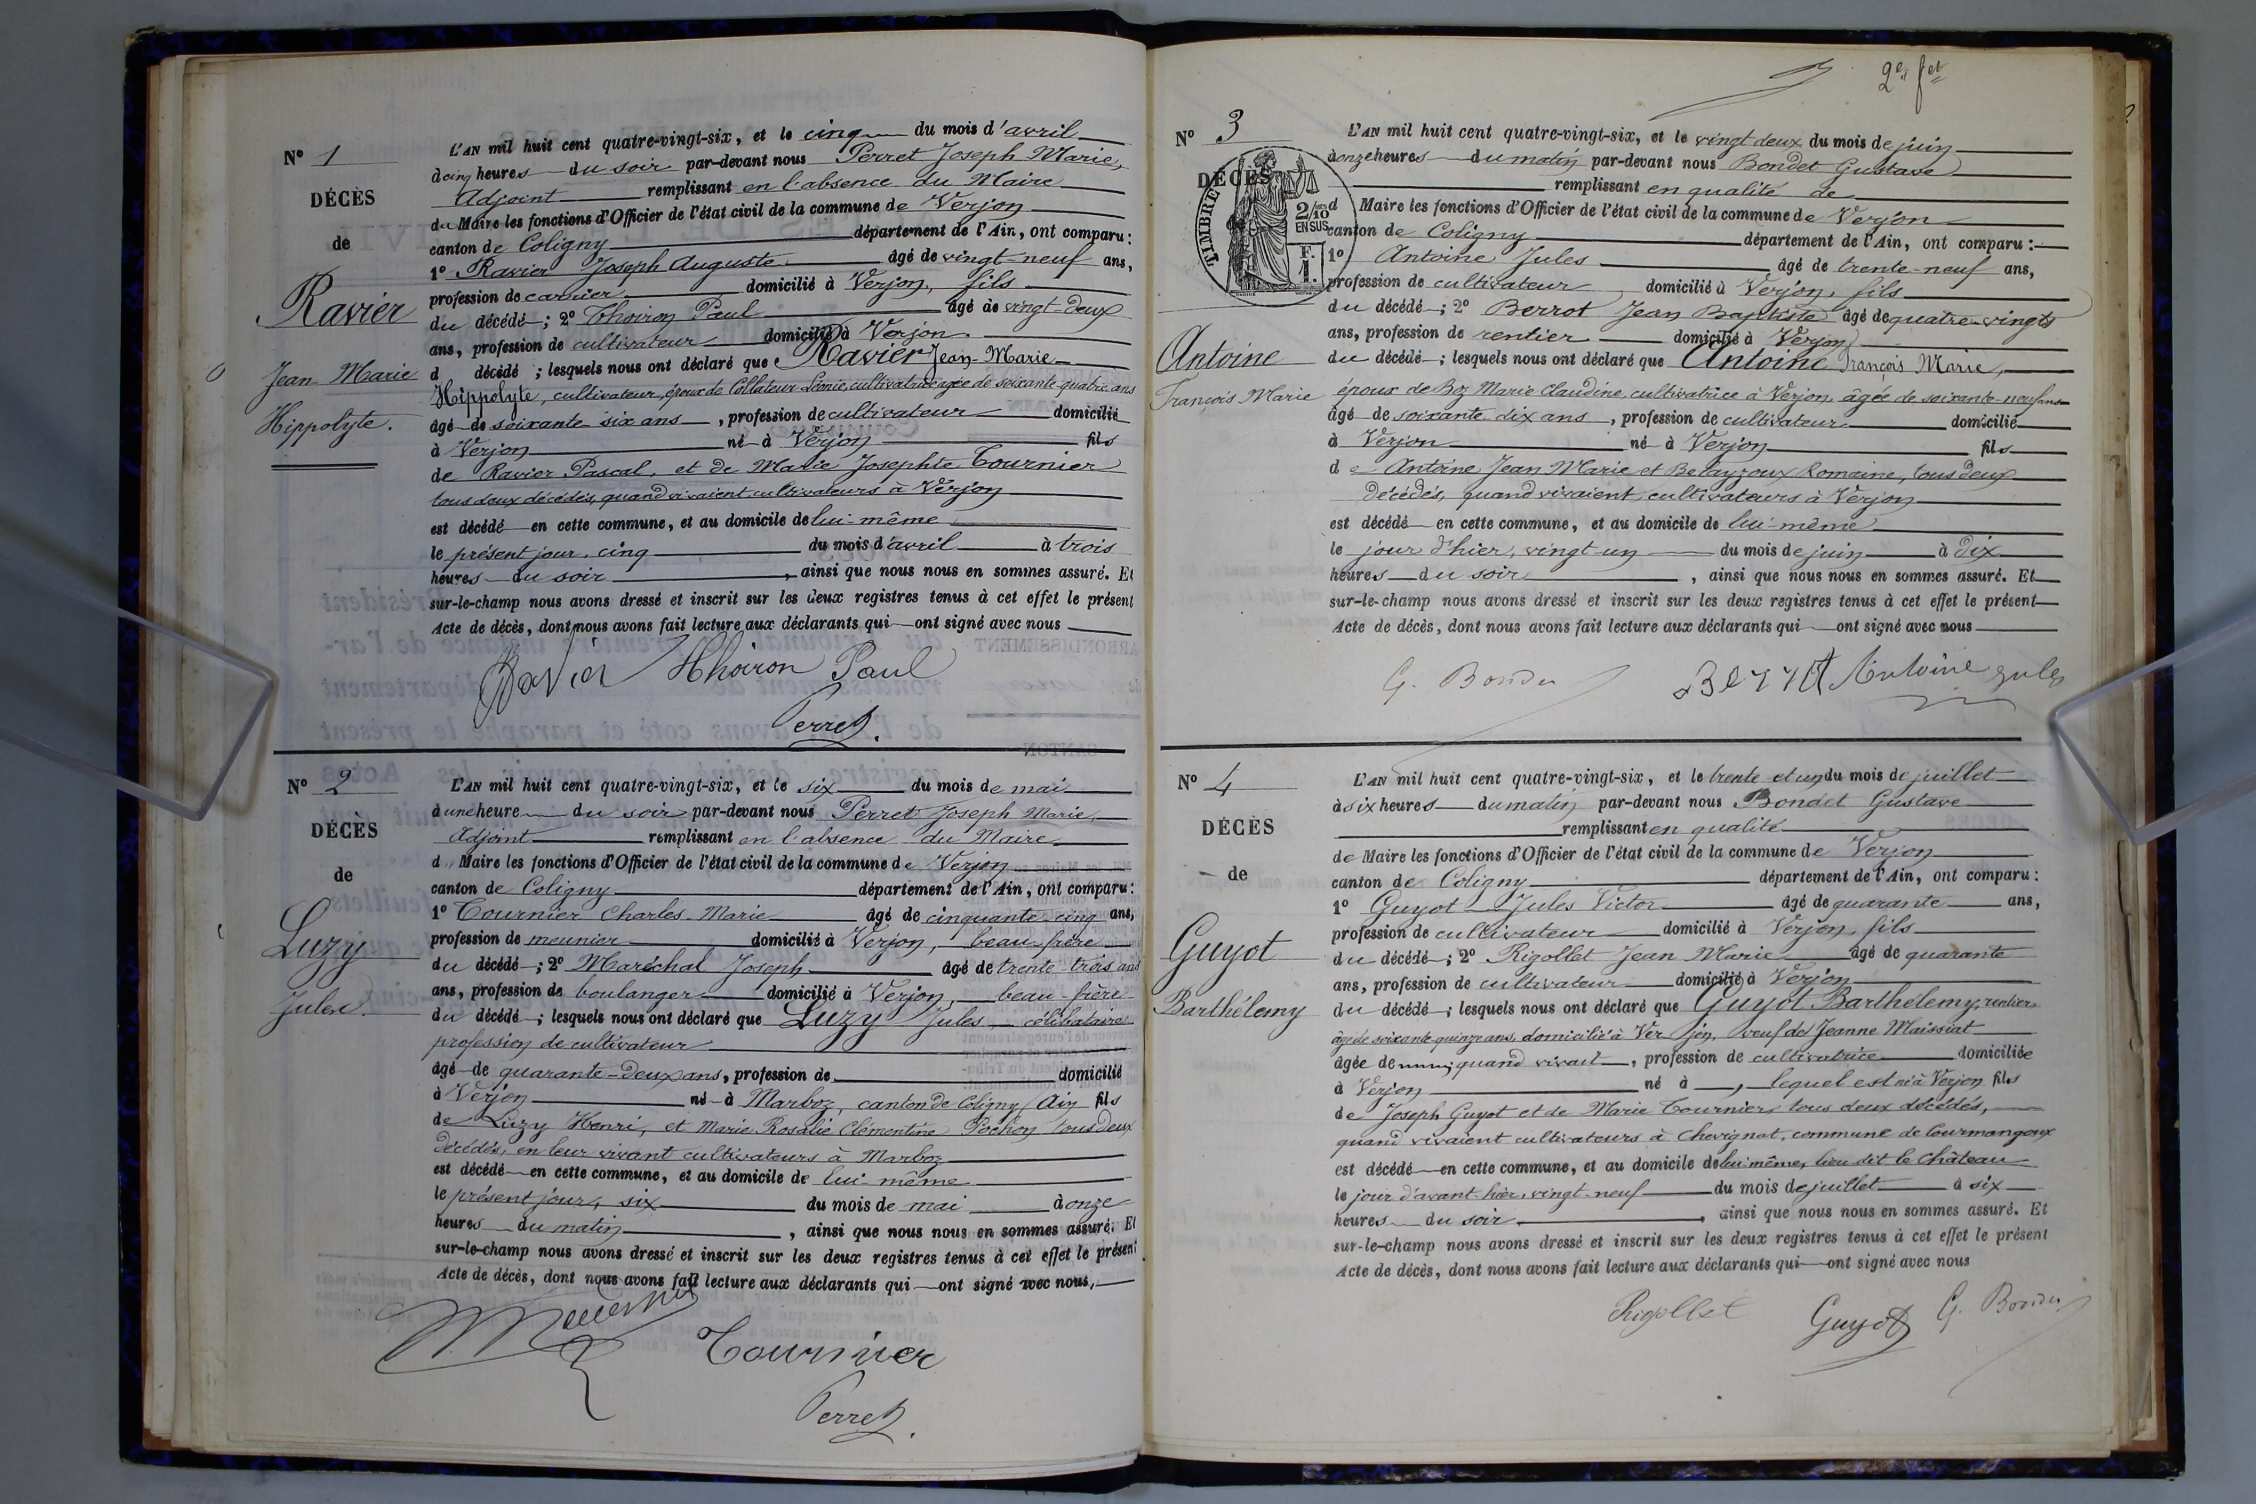 N° 1
DÉCÈS
de
Ravier
Jean Marie
Hippolyte.
L'AN mil huit cent quatre-vingt-six, et le cinq du mois d'avril
à cinq heures du soir par-devant nous Perret Joseph Marie,
Adjoint remplissant en l'absence du Maire
du Maire les fonctions d'Officier de l'état civil de la commune de Verjon
canton de Coligny département de l'Ain, ont comparu :
1° Ravier Joseph Auguste âgé de vingt-neuf ans,
profession de carrier domicilié à Verjon, fils
du décédé ; 2° Thoiron Paul âgé de vingt-deux
ans, profession de cultivateur domicilié à Verjon.
d décédé ; lesquels nous ont déclaré que Ravier Jean-Marie
Hippolyte, cultivateur, époux de Collateur Léonie cultivatrice agée de soixante quatre ans
âgé de soixante six ans, profession de cultivateur domicilié
à Verjon né à Verjon fils
de Ravier Pascal, et de Marie Josephte Tournier
tous deux décédés, quand vivaient cultivateurs à Verjon
est décédé en cette commune, et au domicile de lui-même
le présent jour, cinq du mois d'avril à trois
heures du soir, ainsi que nous nous en sommes assuré. Et
sur-le-champ nous avons dressé et inscrit sur les deux registres tenus à cet effet le présent
Acte de décès, dont nous avons fait lecture aux déclarants qui ont signé avec nous
Ravier Thoiron Paul
Perret.
N° 2
DÉCÈS
de
Luzy
Jules.
L'AN mil huit cent quatre-vingt-six, et le six du mois de mai
à une heure du soir par-devant nous Perret Joseph Marie,
Adjoint remplissant en l'absence du Maire
d Maire les fonctions d'Officier de l'état civil de la commune de Verjon
canton de Coligny département de l'Ain, ont comparu :
1° Tournier Charles Marie âgé de cinquante cinq ans,
profession de meunier domicilié à Verjon, beau-frère
du décédé ; 2° Maréchal Joseph âgé de trente-trois ans
ans, profession de boulanger domicilié à Verjon, beau-frère
du décédé ; lesquels nous ont déclaré que Luzy Jules célibataire
profession de cultivateur
âgé de quarante-deux ans, profession de domicilié
à Verjon né à Marboz, canton de Coligny (Ain fils
de Luzy Henri, et Marie Rosalie Clémentine Pochon tous deux
décédés, en leur vivant cultivateurs à Marboz
est décédé en cette commune, et au domicile de lui même
le présent jour, six du mois de mai à onze
heures du matin, ainsi que nous nous en sommes assuré. Et
sur-le-champ nous avons dressé et inscrit sur les deux registres tenus à cet effet le présent
Acte de décès, dont nous avons fait lecture aux déclarants qui ont signé avec nous,
Tournier
Perret.
2e fet
N° 3
DÉCÈS
TIMBRE
2/10
EN SUS
F.
1.
Antoine
François Marie
L'AN mil huit cent quatre-vingt-six, et le vingt deux du mois de juin
à onze heures du matin par-devant nous Bondet Gustave
remplissant en qualité de
d Maire les fonctions d'Officier de l'état civil de la commune de Verjon
canton de Coligny département de l'Ain, ont comparu :
1° Antoine Jules âgé de trente-neuf ans,
profession de cultivateur domicilié à Verjon, fils
du décédé ; 2° Berrot Jean Baptiste âgé de quatre-vingts
ans, profession de rentier domicilié à Verjon
du décédé ; lesquels nous ont déclaré que Antoine François Marie,
époux de Boz Marie Claudine, cultivatrice à Verjon âgée de soixante-neuf ans
âgé de soixante dix ans, profession de cultivateur domicilié
à Verjon né à Verjon fils
de Antoine Jean Marie et Romaine, tous deux
décédés, quand vivaient, cultivateurs à Verjon
est décédé en cette commune, et au domicile de lui-même
le jour d'hier, vingt-un du mois de juin à dix
heures du soir, ainsi que nous nous en sommes assuré. Et
sur-le-champ nous avons dressé et inscrit sur les deux registres tenus à cet effet le présent
Acte de décès, dont nous avons fait lecture aux déclarants qui ont signé avec nous
G. Bondet Berrot Antoine Jules
N° 4
DÉCÈS
de
Guyot
Barthélemy
L'AN mil huit cent quatre-vingt-six, et le trente et un du mois de juillet
à six heures du matin par-devant nous Bondet Gustave
remplissant en qualité
de Maire les fonctions d'Officier de l'état civil de la commune de Verjon
canton de Coligny département de l'Ain, ont comparu :
1° Guyot Jules Victor âgé de quarante ans,
profession de cultivateur domicilié à Verjon, fils
du décédé ; 2° Rigollet Jean Marie âgé de quarante
ans, profession de cultivateur domicilié à Verjon
du décédé ; lesquels nous ont déclaré que Guyot Barthélemy, rentier
âgé de soixante quinze ans, domicilié à Verjon, veuf de Jeanne Maissiat
âgée de quand vivait, profession de cultivatrice domiciliée
à Verjon né à , lequel est né à Verjon fils
de Joseph Guyot et de Marie Tournier, tous deux décédés,
quand vivaient cultivateurs à Chevignat, commune de Courmangoux
est décédé en cette commune, et au domicile de lui-même, lieu dit le Château
le jour d'avant-hier, vingt-neuf du mois de juillet à six
heures du soir, ainsi que nous nous en sommes assuré. Et
sur-le-champ nous avons dressé et inscrit sur les deux registres tenus à cet effet le présent
Acte de décès, dont nous avons fait lecture aux déclarants qui ont signé avec nous
Rigollet Guyot G. Bondet